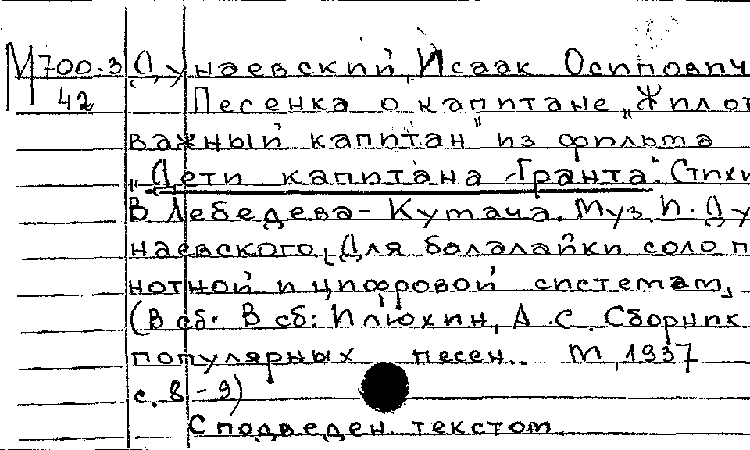 М700-3 Дунаевский, Исаак Осипович
42 Песенка о капитане „Жил от
важный капитан" из фильма
„Дети капитана Гранта". Стихи
В Лебедева-Кутача. Муз И. Ду
наевского, Для балалайки соло п
нотной и цифровой системам,
(В сб. В сб: Илюхин, А.С. Сборник
популярных песен.. М, 1937
с. 8-9)
С подведен. текстом.